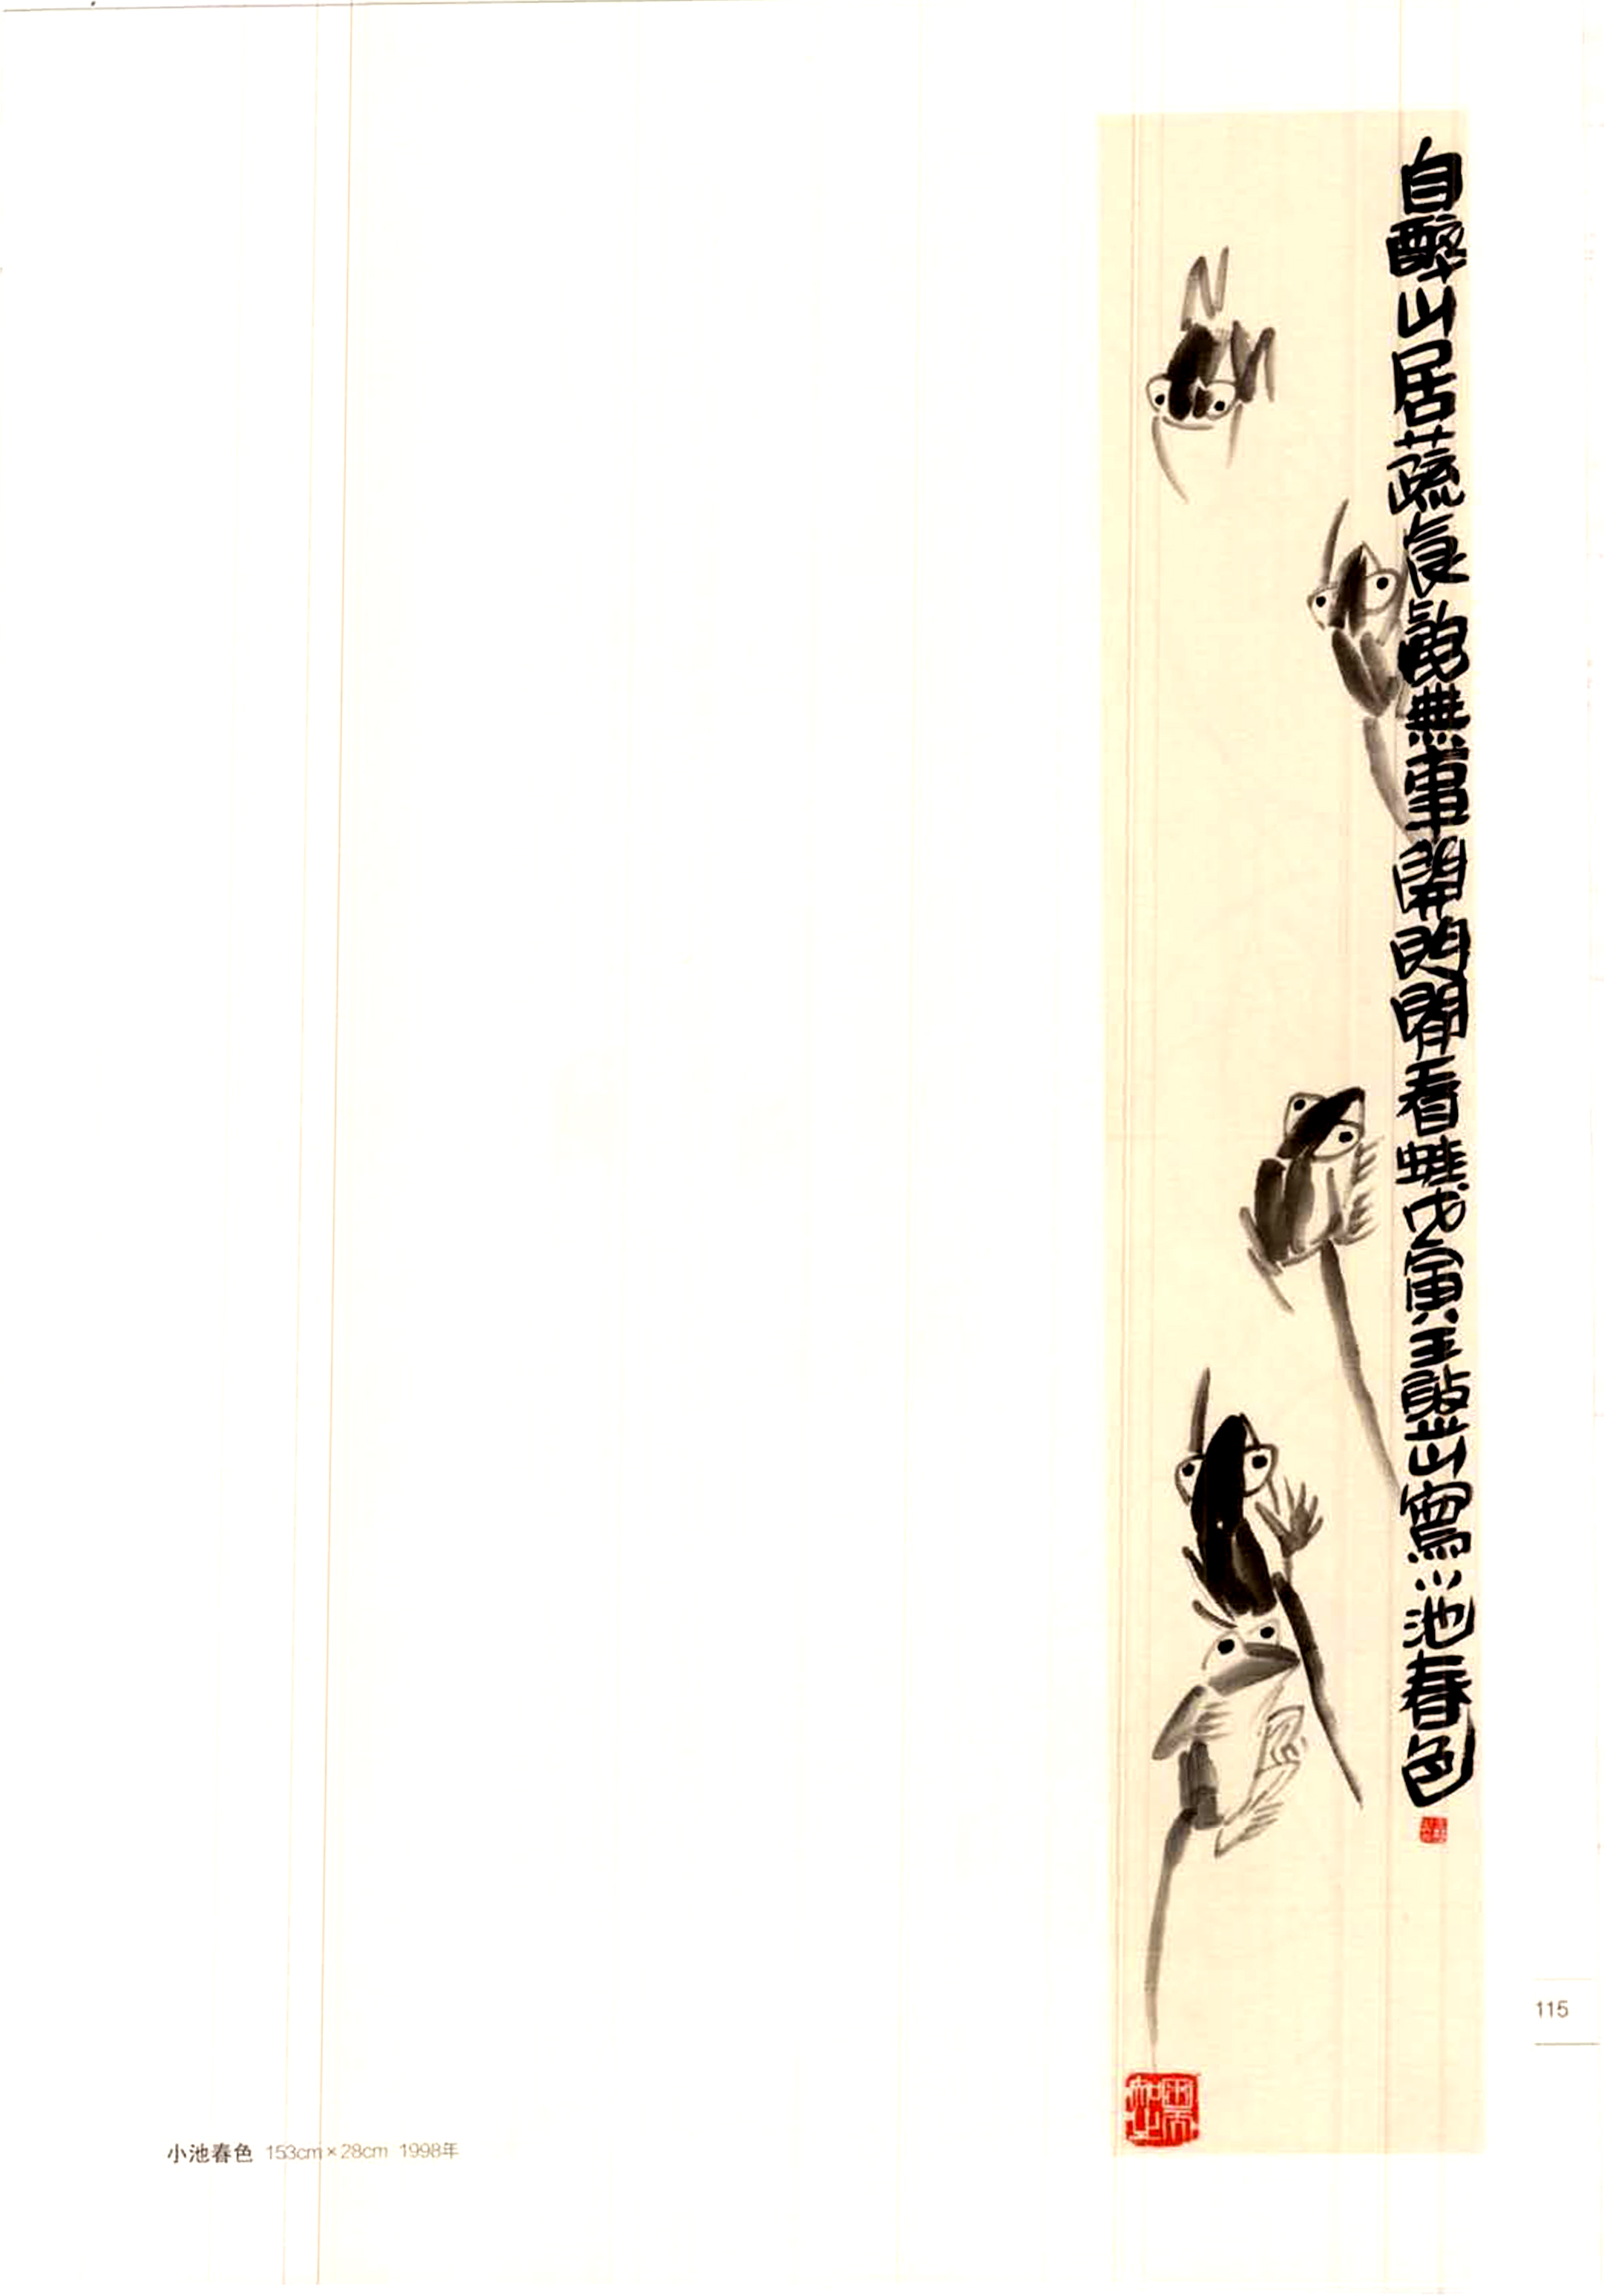 自醉山居蔬食飽無事開門閒看蛙戊寅王啟山寫小池春色
115
小池春色 153cm×28cm 1998年